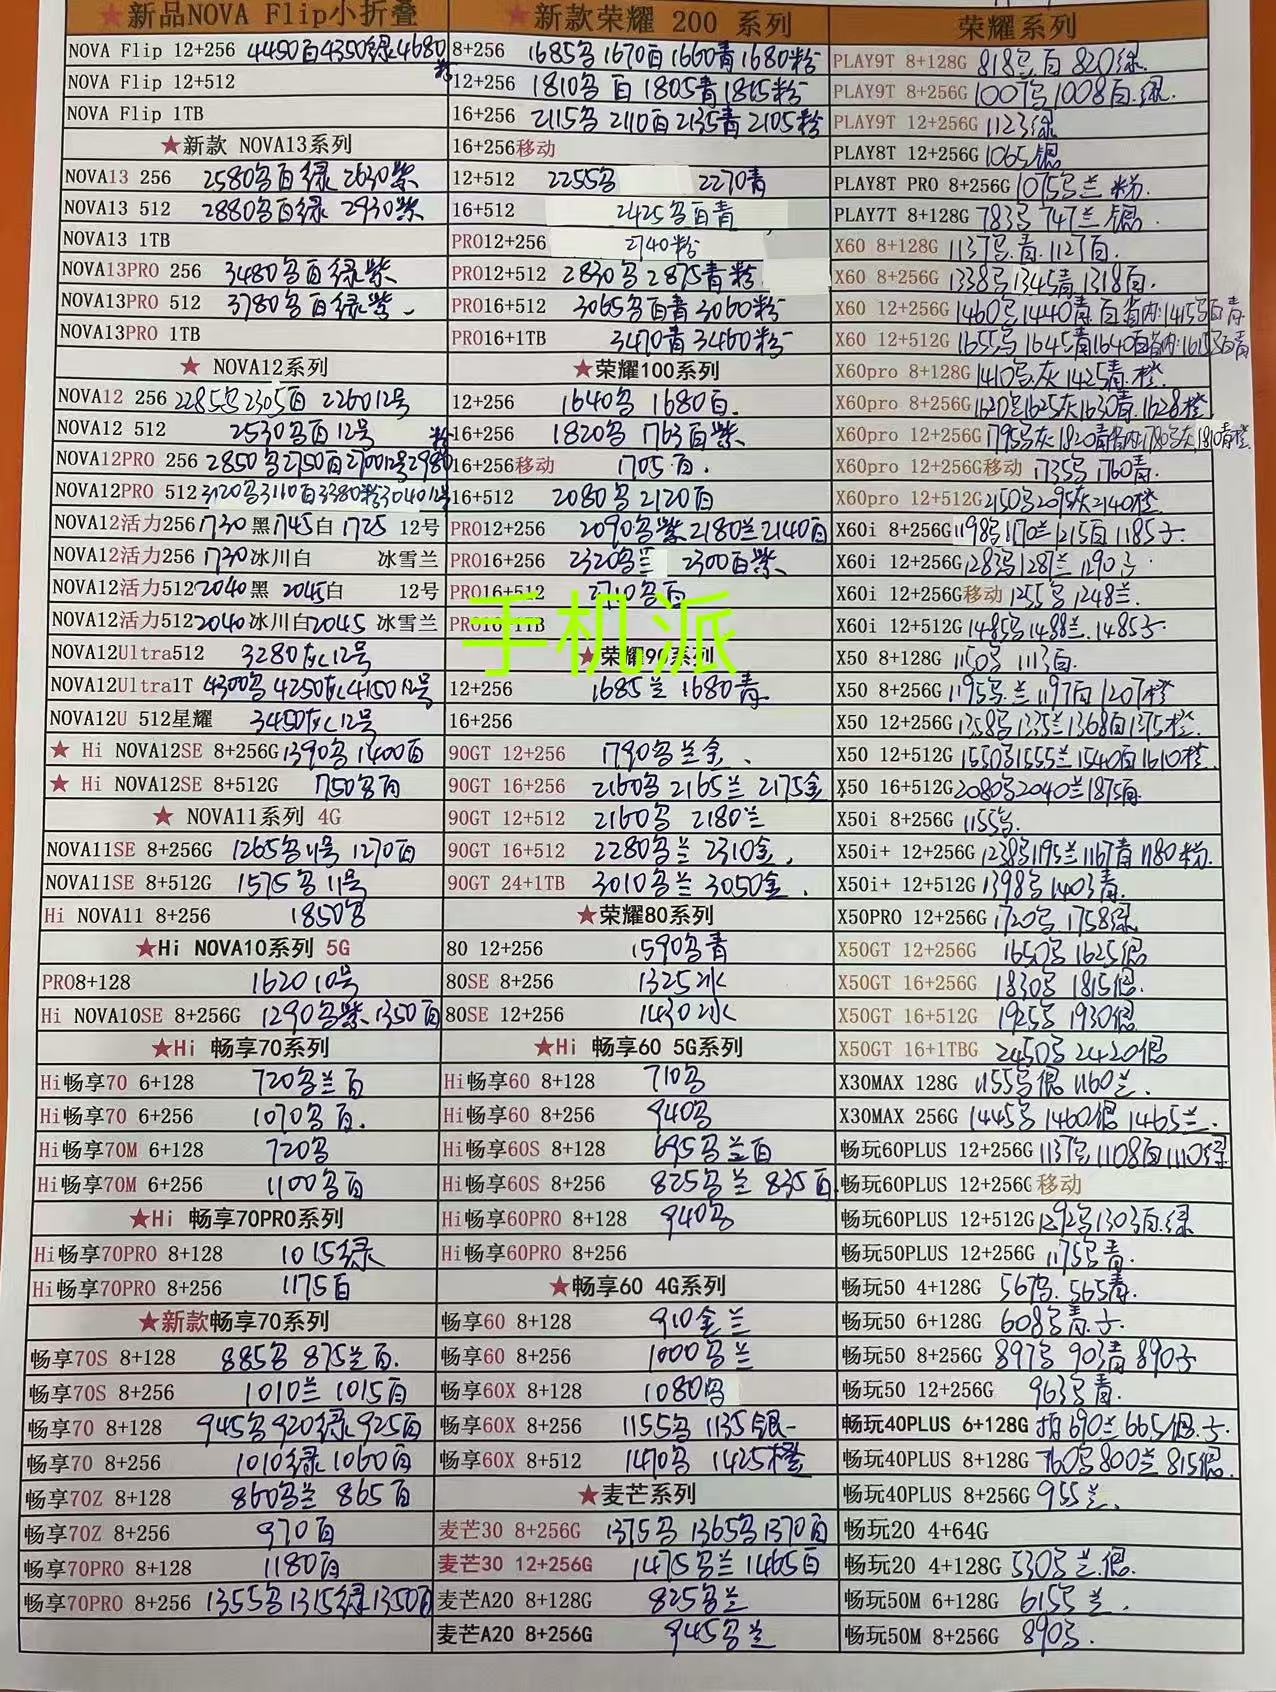 ★新品NOVA Flip小折叠
NOVA Flip 12+256 4450百4350绿4680粉
NOVA Flip 12+512
NOVA Flip 1TB
★新款 NOVA13系列
NOVA13 256 2580名百绿 2630紫
NOVA13 512 2880名百绿 2930紫
NOVA13 1TB
NOVA13PRO 256 3480名百绿紫
NOVA13PRO 512 3780名百绿紫
NOVA13PRO 1TB
★ NOVA12系列
NOVA12 256 2285名2305百 2260 12号
NOVA12 512 2530名百12号
NOVA12PRO 256 2850名2750百2700 12号2980粉
NOVA12PRO 512 3120名3110百3380粉3040 12号
NOVA12活力256 1730 黑1745白 1725 12号
NOVA12活力256 1730冰川白 冰雪兰
NOVA12活力512 2040 黑 2045白 12号
NOVA12活力512 2040 冰川白2045 冰雪兰
NOVA12Ultra512 3280灰12号
NOVA12Ultra1T 4300名 4250灰4150 12号
NOVA12U 512星耀 3450灰12号
★ Hi NOVA12SE 8+256G 1390名 1400百
★ Hi NOVA12SE 8+512G 1750名百
★ NOVA11系列 4G
NOVA11SE 8+256G 1265名11号 1270百
NOVA11SE 8+512G 1575名 11号
Hi NOVA11 8+256 1850名
★Hi NOVA10系列 5G
PRO8+128 1620 10号
Hi NOVA10SE 8+256G 1290名紫 1350百
★Hi 畅享70系列
Hi畅享70 6+128 720名兰百
Hi畅享70 6+256 1070名百.
Hi畅享70M 6+128 720名
Hi畅享70M 6+256 1100名百
★Hi 畅享70PRO系列
Hi畅享70PRO 8+128 1015绿
Hi畅享70PRO 8+256 1175百
★新款畅享70系列
畅享70S 8+128 885名 875兰百.
畅享70S 8+256 1010兰 1015百
畅享70 8+128 945名920绿925百
畅享70 8+256 1010绿1060百
畅享70Z 8+128 860名兰 865百
畅享70Z 8+256 970百
畅享70PRO 8+128 1180百
畅享70PRO 8+256 1355名1315绿1350百
★新款荣耀 200 系列
8+256 1685名1670百1660青1680粉
12+256 1810名 百 1805青1815粉
16+256 2115名2110百2135青2105粉
16+256移动
12+512 2255名 2270青
16+512 2425名百青
PRO12+256 2740粉
PRO12+512 2830名2875青粉
PRO16+512 3065名百青3060粉
PRO16+1TB 3470青3460粉
★荣耀100系列
12+256 1640名 1680百.
16+256 1820名 1763百紫
16+256移动 1705百.
16+512 2080名2120百
PRO12+256 2090名紫2180兰2140百
PRO16+256 2320名兰 2300百紫
PRO16+512 名百
PRO16+1TB
手机派
★荣耀90系列
12+256 1685兰 1680青
16+256
90GT 12+256 1790名兰金
90GT 16+256 2160名 2165兰 2175金
90GT 12+512 2160名 2180兰
90GT 16+512 2280名兰 2310金
90GT 24+1TB 3010名兰 3050金.
★荣耀80系列
80 12+256 1590名青
80SE 8+256 1325冰
80SE 12+256 1430冰
★Hi 畅享60 5G系列
Hi畅享60 8+128 710名
Hi畅享60 8+256 940名
Hi畅享60S 8+128 695名兰百
Hi畅享60S 8+256 825名兰 835百
Hi畅享60PRO 8+128 940名
Hi畅享60PRO 8+256
★畅享60 4G系列
畅享60 8+128 910金兰
畅享60 8+256 1000名兰
畅享60X 8+128 1080名
畅享60X 8+256 1155名 1135银
畅享60X 8+512 1470名 1425橙
★麦芒系列
麦芒30 8+256G 1375名1365名1370百
麦芒30 12+256G 1475名兰1465百
麦芒A20 8+128G 825名兰
麦芒A20 8+256G 945名兰
荣耀系列
PLAY9T 8+128G 818名百 820绿.
PLAY9T 8+256G 1007名1008百.绿.
PLAY9T 12+256G 1123绿
PLAY8T 12+256G 1065银
PLAY8T PRO 8+256G 1075名兰 粉.
PLAY7T 8+128G 783名 747兰银.
X60 8+128G 1137名.青.1127百.
X60 8+256G 1338名1345青1318百.
X60 12+256G 1460名1440青百省内:1415名百青
X60 12+512G 1655名1645青1640百省内:1615名百青
X60pro 8+128G 1410名.灰1425青.橙.
X60pro 8+256G 1620名1625灰1630青.1628橙
X60pro 12+256G 1795名灰1820青省内:1780名灰1810青橙
X60pro 12+256G移动 1735名1760青.
X60pro 12+512G 2150名2095灰2140橙.
X60i 8+256G 1198名1170兰1215百1185子.
X60i 12+256G 1283名1287兰1290子.
X60i 12+256G移动 1255名1248兰.
X60i 12+512G 1485名1488兰.1485子.
X50 8+128G 1150名1113百.
X50 8+256G 1195名.兰1197百1207橙
X50 12+256G 1358名1335兰1368百1375橙.
X50 12+512G 1550名1555兰1540百1610橙.
X50 16+512G 2080名2040兰1875百.
X50i 8+256G 1155名.
X50i+ 12+256G 1238名1195兰1167青1180粉.
X50i+ 12+512G 1398名1403青.
X50PRO 12+256G 1720名1758绿
X50GT 12+256G 1650名1625银
X50GT 16+256G 1830名1815银.
X50GT 16+512G 1925名1930银
X50GT 16+1TBG 2450名2420银
X30MAX 128G 1155名银1160兰.
X30MAX 256G 1445名1460银1465兰.
畅玩60PLUS 12+256G 1137名1108百1110绿
畅玩60PLUS 12+256G 移动
畅玩60PLUS 12+512G 1292名1303百.绿
畅玩50PLUS 12+256G 1175名青.
畅玩50 4+128G 567名.565青.
畅玩50 6+128G 608名青.子.
畅玩50 8+256G 897名903青890子
畅玩50 12+256G 963名青.
畅玩40PLUS 6+128G 690兰665银.子.
畅玩40PLUS 8+128G 760名800兰815银.
畅玩40PLUS 8+256G 955兰.
畅玩20 4+64G
畅玩20 4+128G 530名兰.银.
畅玩50M 6+128G 615名兰.
畅玩50M 8+256G 890名.